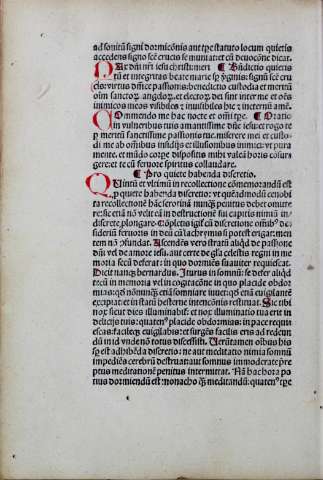 ad sonitū signi dormicōnis ante ꝑstatuto locum quietis
accedens signo scē crucis se muniat et cū deuocōne dicat.
Pax dn̄i nr̄i iesu christi meri ¶ Bn̄dictio quietis
tū et integritas beate marie sꝑ ỹginis: signū scē cru
cis: virtus dn̄ice passionis: benedictio custodia et meritū
oīm sanctoꝝ angeloꝝ. et electoꝝ dei sint inter me et oēs
inimicos meos visibiles ⁊ inuisibiles hic ⁊ internū amē.
Commendo me hac nocte et omī tꝑe. ¶ Oratio
in vulneribus tuis amantissime dūe iesu: et rogo te
ꝑ meritū sanctissime passionis tue. miserere mei et custo
di me ab omībus insidijs et illusionibus inimici: vt pura
mente. et mūdo corꝑe dispositis mihi valeā horis cosur
gere: et te cū feruore spiritus collaudare.
¶ Pro quiete habenda discretio.
Quintū et vltimū in recollectione cōmemorādū est
ꝑ quiete habenda discretio: vt quēadmodū cenobi
ta recollectionē hāc serotinā nunꝗ̄ penitus debet omitte
re: sic etiā nō velit eā in destructionē sui capitis nimiū in
discrete, plongare. Cōpletis igit̄ cū discretione
sideriū feruoris in deū cū lachrymis si potest erigat: men
tem nō ꝯfundat. Ascendēs vero stratū aliqd de passiōe
dn̄i vel de amore iesu. aut certe de gl̄a celestis regni in me
moria secū deferat: in quo dormiēs suauiter requiescat.
Dicit nanꝗ bernardus. Iturus in somnū: se defer aliqd
tecū in memoria vel in cogitacōne in quo placide obdor
mias: qd̄ nōnunꝗ etiā somniare iuuet: qd̄ etiā euigilantē
excipiat: et in statū hesterne intencōnis restituat. Sic tibi
nox sicut dies illuminabit̄: et nox illuminatio tua erit in
delicijs tuis: quatenꝰ placide obdormias: in pace requi
escas: facileꝗ euigilabis: et surgēs facilis eris ad redeun
dū in id vnde nō totus discessisti. Verūtamen oībus his
sꝑ est adhibēda discretio: ne aut meditatio nimia somnū
impediēs cerebrū destruat: aut somnus immoderate ꝑtra
ptus meditationē penitus intermittat. Nā hac hora po
tius dormiendū est monacho ꝗ̄ meditandū: quatenꝰ tꝑe